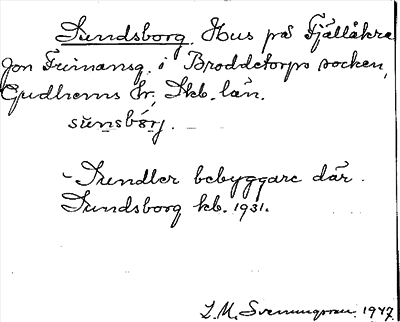 Sundsborg. Hus på Fjällåkra
Jon Frimansg. i Broddetorps socken,
Gudhems hr, Skb. län.
sŭnsbórj.
- Sundler bebyggare där.
Sundsborg kb. 1931.
L. M. Svenungsson. 1947